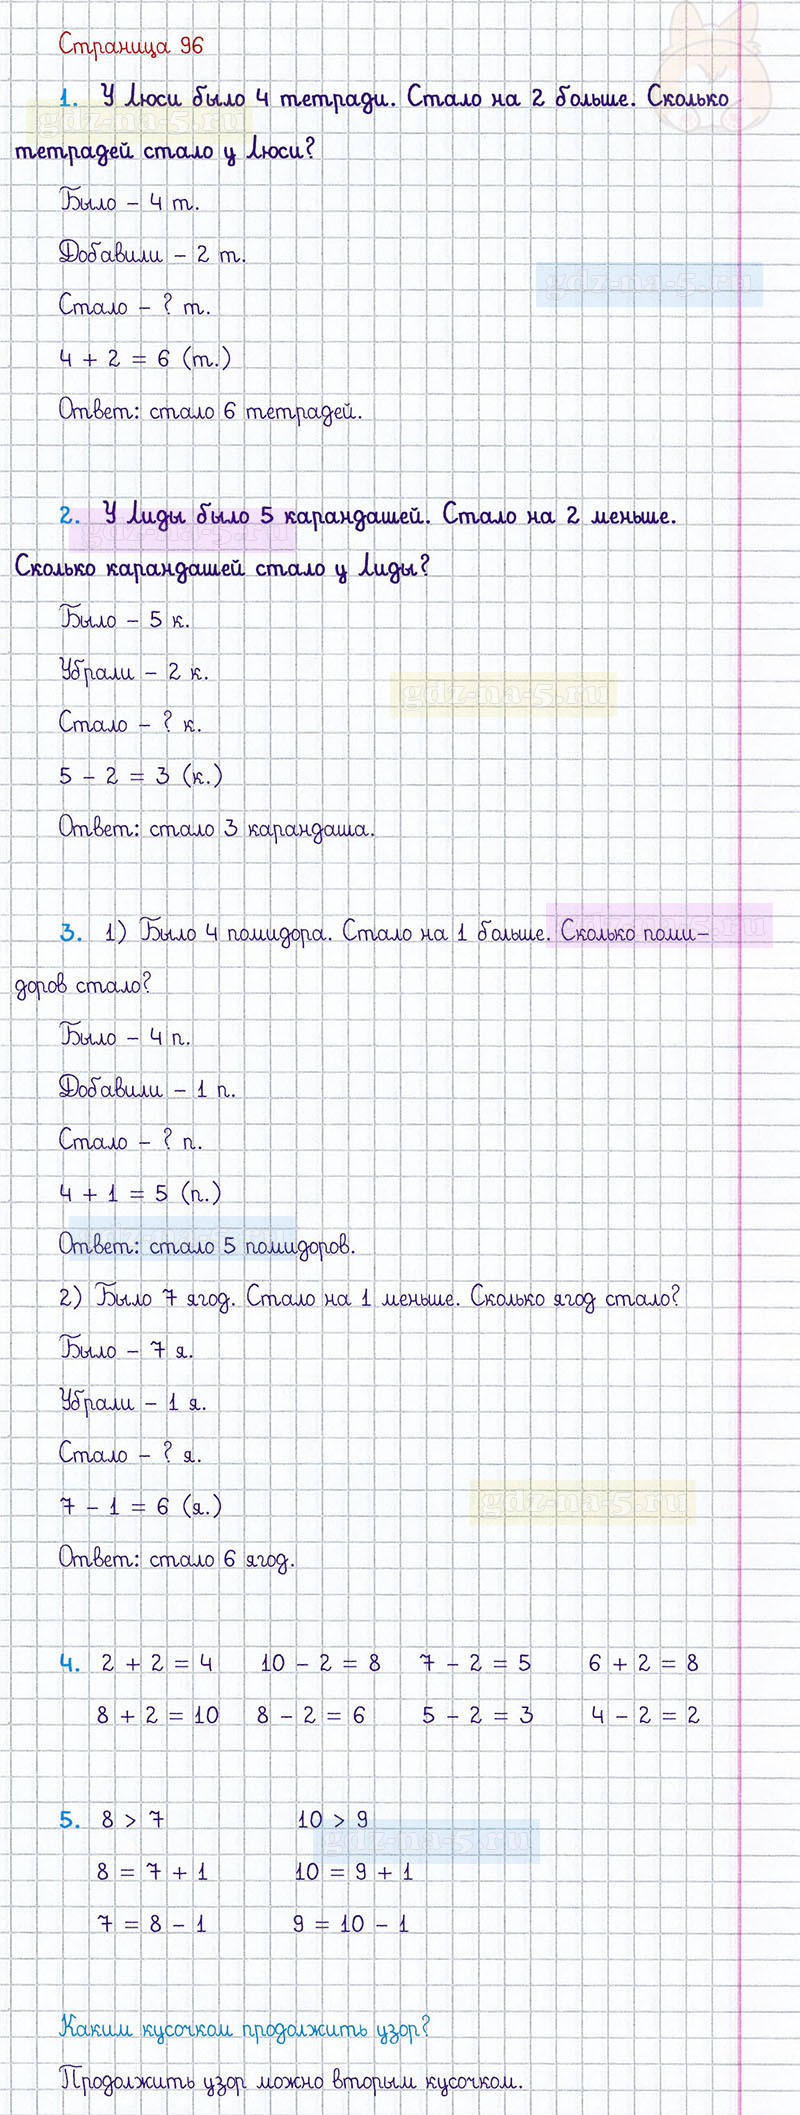 Страница 96
1. У Люси было 4 тетради. Стало на 2 больше. Сколько
gdz-na-5.ru
тетрадей стало у Люси?
Было – 4 т.
Добавили – 2 т.
gdz-na-5.ru
Стало – ? т.
4 + 2 = 6 (т.)
Ответ: стало 6 тетрадей.
2. У Лиды было 5 карандашей. Стало на 2 меньше.
gdz-na-5.ru
Сколько карандашей стало у Лиды?
Было – 5 к.
Убрали – 2 к.
gdz-na-5.ru
Стало – ? к.
5 – 2 = 3 (к.)
Ответ: стало 3 карандаша.
3. 1) Было 4 помидора. Стало на 1 больше. Сколько поми–
gdz-na-5.ru
доров стало?
Было – 4 п.
Добавили – 1 п.
Стало – ? п.
4 + 1 = 5 (п.)
Ответ: стало 5 помидоров.
gdz-na-5.ru
2) Было 7 ягод. Стало на 1 меньше. Сколько ягод стало?
Было – 7 я.
Убрали – 1 я.
Стало – ? я.
7 – 1 = 6 (я.)
gdz-na-5.ru
Ответ: стало 6 ягод.
4. 2 + 2 = 4 10 – 2 = 8 7 – 2 = 5 6 + 2 = 8
8 + 2 = 10 8 – 2 = 6 5 – 2 = 3 4 – 2 = 2
5. 8 > 7 10 > 9
gdz-na-5.ru
8 = 7 + 1 10 = 9 + 1
7 = 8 – 1 9 = 10 – 1
Каким кусочком продолжить узор?
Продолжить узор можно вторым кусочком.